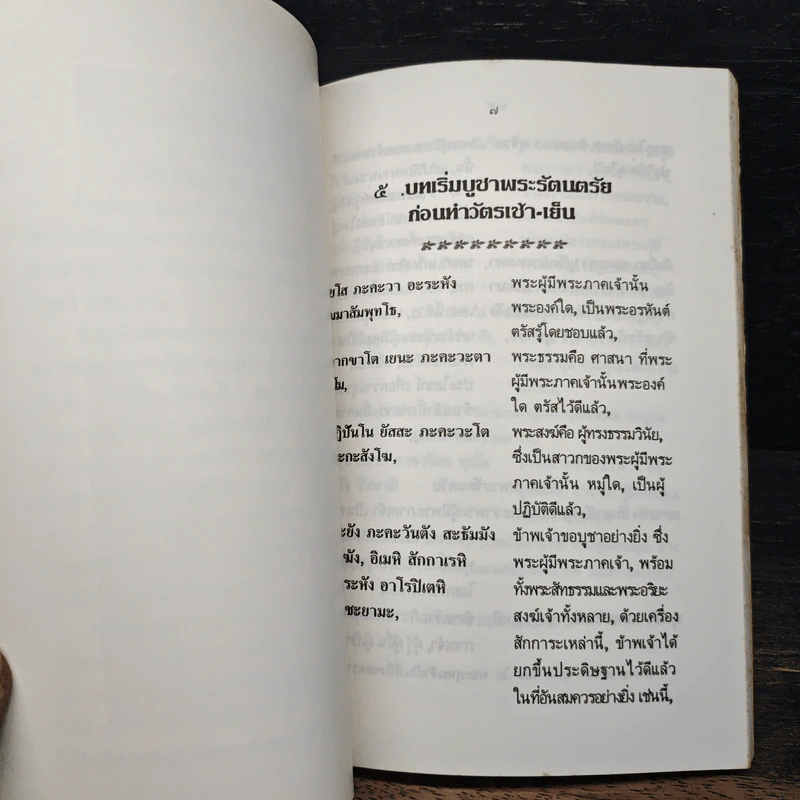 ๗
๕ .บทเริ่มบูชาพระรัตนตรัย
ก่อนทำวัตรเช้า-เย็น
ภะคะวา อะระหัง
พระผู้มีพระภาคเจ้านั้น
พระองค์ใด, เป็นพระอรหันต์
ตรัสรู้โดยชอบแล้ว,
เยนะ ภะคะวะตา
พระธรรมคือ ศาสนา ที่พระ
ผู้มีพระภาคเจ้านั้นพระองค์
ใด ตรัสไว้ดีแล้ว,
ยัสสะ ภะคะวะโต
พระสงฆ์คือ ผู้ทรงธรรมวินัย,
ซึ่งเป็นสาวกของพระผู้มีพระ
ภาคเจ้านั้น หมู่ใด, เป็นผู้
ปฏิบัติดีแล้ว,
ภะคะวันตัง สะธัมมัง
อิเมหิ สักกาเรหิ
อาโรปิเตหิ
ข้าพเจ้าขอบูชาอย่างยิ่ง ซึ่ง
พระผู้มีพระภาคเจ้า, พร้อม
ทั้งพระสัทธรรมและพระอริยะ
สงฆ์เจ้าทั้งหลาย, ด้วยเครื่อง
สักการะเหล่านี้, ข้าพเจ้าได้
ยกขึ้นประดิษฐานไว้ดีแล้ว
ในที่อันสมควรอย่างยิ่ง เช่นนี้,